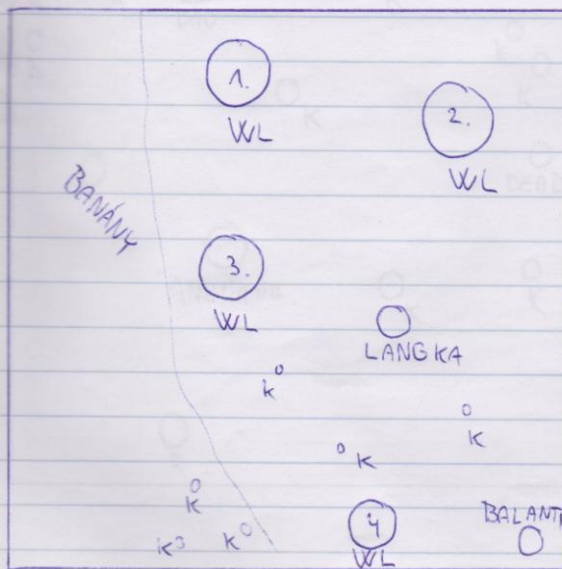 1.
WL
2.
WL
BANÁNY
3.
WL
LANGKA
K
K
K
K
K
K
4
WL
BALANTI